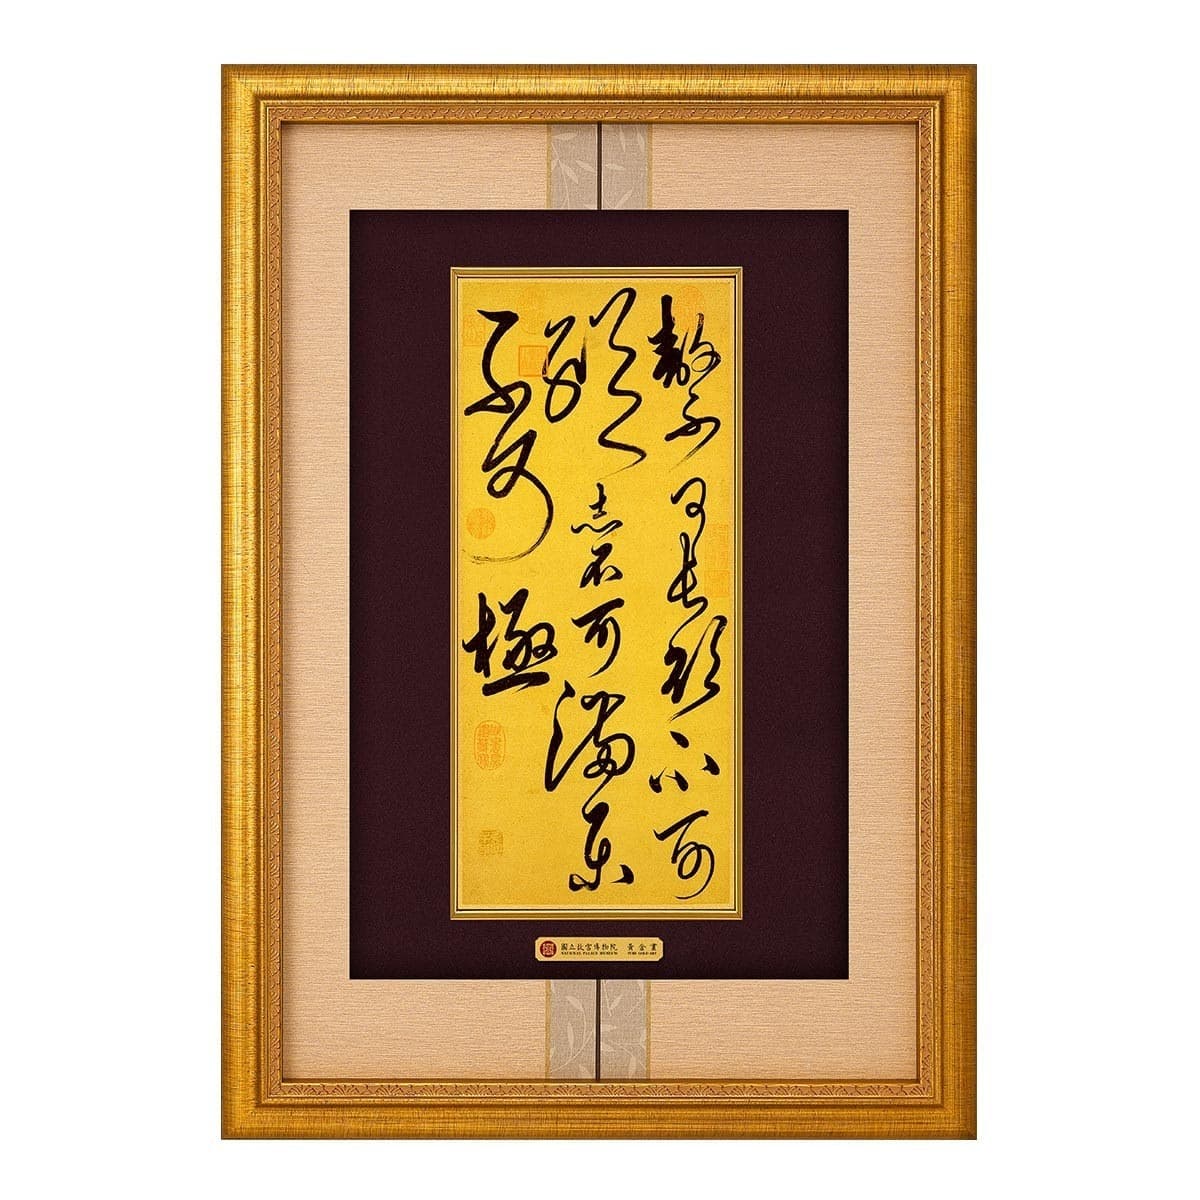 敖不可長欲不可
縱志不可滿樂
不可極
國立故宮博物院 黃金畫
NATIONAL PALACE MUSEUM PURE GOLD ART